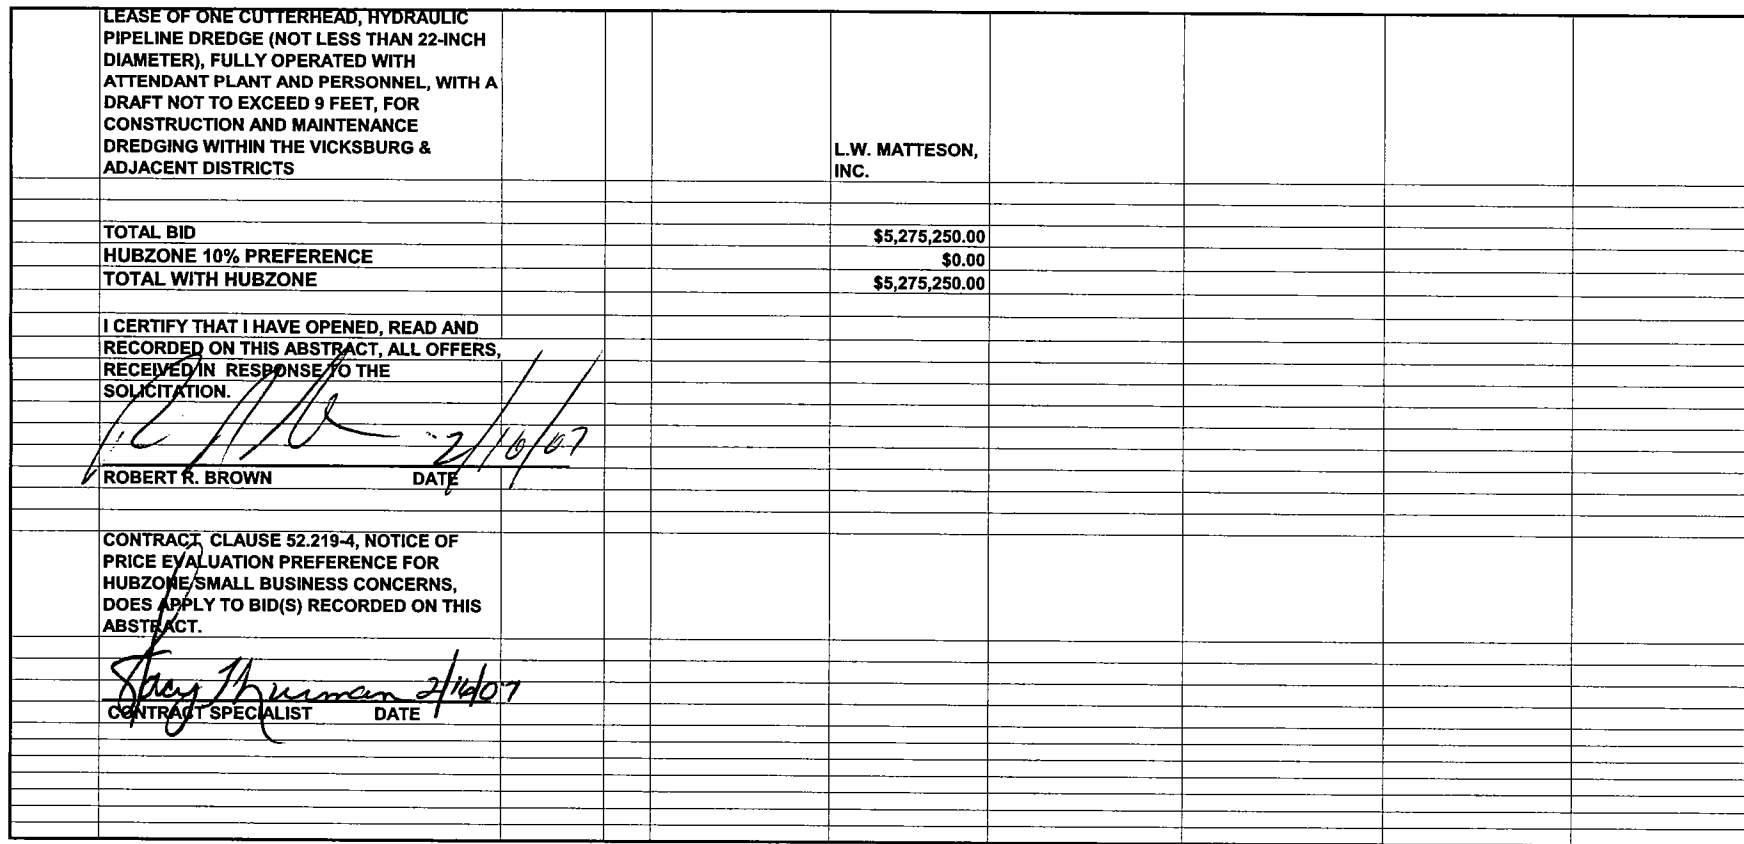 LEASE OF ONE CUTTERHEAD, HYDRAULIC
PIPELINE DREDGE (NOT LESS THAN 22-INCH
DIAMETER), FULLY OPERATED WITH
ATTENDANT PLANT AND PERSONNEL, WITH A
DRAFT NOT TO EXCEED 9 FEET, FOR
CONSTRUCTION AND MAINTENANCE
DREDGING WITHIN THE VICKSBURG &
ADJACENT DISTRICTS
L.W. MATTESON,
INC.
TOTAL BID $5,275,250.00
HUBZONE 10% PREFERENCE $0.00
TOTAL WITH HUBZONE $5,275,250.00
I CERTIFY THAT I HAVE OPENED, READ AND
RECORDED ON THIS ABSTRACT, ALL OFFERS,
RECEIVED IN RESPONSE TO THE
SOLICITATION.
2/16/07
ROBERT R. BROWN DATE
CONTRACT CLAUSE 52.219-4, NOTICE OF
PRICE EVALUATION PREFERENCE FOR
HUBZONE SMALL BUSINESS CONCERNS,
DOES APPLY TO BID(S) RECORDED ON THIS
ABSTRACT.
Stacy Thurman 2/16/07
CONTRACT SPECIALIST DATE